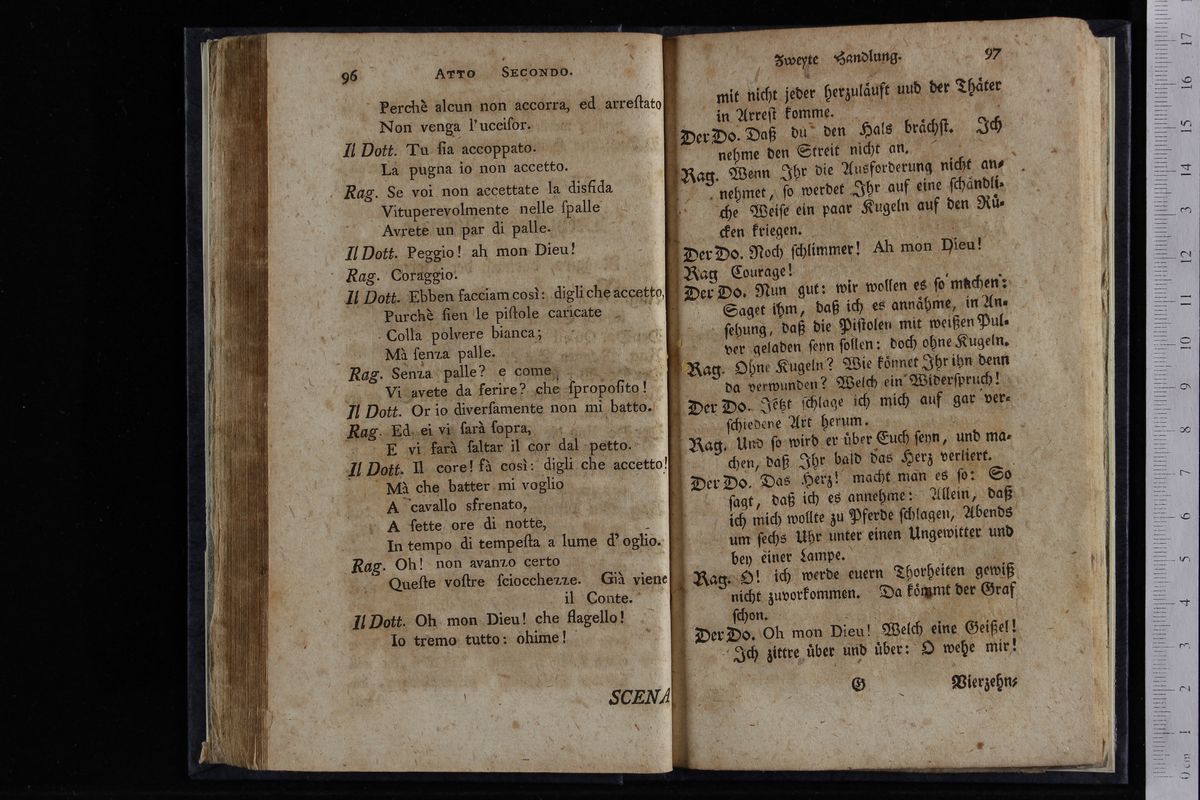 96 ATTO SECONDO.
Perchè alcun non accorra, ed arreſtato
Non venga l'ucciſor.
Il Dott. Tu ſia accoppato.
La pugna io non accetto.
Rag. Se voi non accettate la disfida
Vituperevolmente nelle ſpalle
Avrete un par di palle.
Il Dott. Peggio! ah mon Dieu!
Rag. Coraggio.
Il Dott. Ebben facciam così: digli che accetto,
Purchè ſien le piſtole caricate
Colla polvere bianca;
Mà ſenza palle.
Rag. Senza palle? e come
Vi avete da ferire? che ſpropoſito!
Il Dott. Or io diverſamente non mi batto.
Rag. Ed ei vi ſarà ſopra,
E vi farà ſaltar il cor dal petto.
Il Dott. Il core! fà così: digli che accetto!
Mà che batter mi voglio
A cavallo sfrenato,
A ſette ore di notte,
In tempo di tempeſta a lume d'oglio.
Rag. Oh! non avanzo certo
Queſte voſtre ſciocchezze. Già viene
il Conte.
Il Dott. Oh mon Dieu! che flagello!
Io tremo tutto: ohime!
SCENA
Zweyte Handlung. 97
mit nicht jeder herzuläuft uud der Thäter
in Arreſt komme.
Der Do. Daß du den Hals brächſt. Ich
nehme den Streit nicht an.
Rag. Wenn Ihr die Ausforderung nicht an⸗
nehmet, ſo werdet Ihr auf eine ſchändli⸗
che Weiſe ein paar Kugeln auf den Rü⸗
cken kriegen.
Der Do. Noch ſchlimmer! Ah mon Dieu!
Rag Courage!
Der Do. Nun gut: wir wollen es ſo machen:
Saget ihm, daß ich es annähme, in An⸗
ſehung, daß die Piſtolen mit weißen Pul⸗
ver geladen ſeyn ſollen: doch ohne Kugeln.
Rag. Ohne Kugeln? Wie könnet Ihr ihn denn
da verwunden? Welch ein Widerſpruch!
Der Do. Jetzt ſchlage ich mich auf gar ver⸗
ſchiedene Art herum.
Rag. Und ſo wird er über Euch ſeyn, und ma⸗
chen, daß Ihr bald das Herz verliert.
Der Do. Das Herz! macht man es ſo: So
ſagt, daß ich es annehme: Allein, daß
ich mich wollte zu Pferde ſchlagen, Abends
um ſechs Uhr unter einen Ungewitter und
bey einer Lampe.
Rag. O! ich werde euern Thorheiten gewiß
nicht zuvorkommen. Da kömmt der Graf
ſchon.
Der Do. Oh mon Dieu! Welch eine Geißel!
Ich zittre über und über: O wehe mir!
G Vierzehn⸗
0 cm 1 2 3 4 5 6 7 8 9 10 11 12 13 14 15 16 17